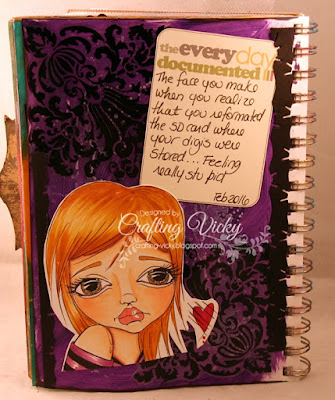 the everyday
documented
The face you make
when you realize
that you reformated
the SD card where
your digis were
stored... Feeling
really stupid
Feb 2016
Designed by
Crafting Vicky
crafting-vicky.blogspot.com